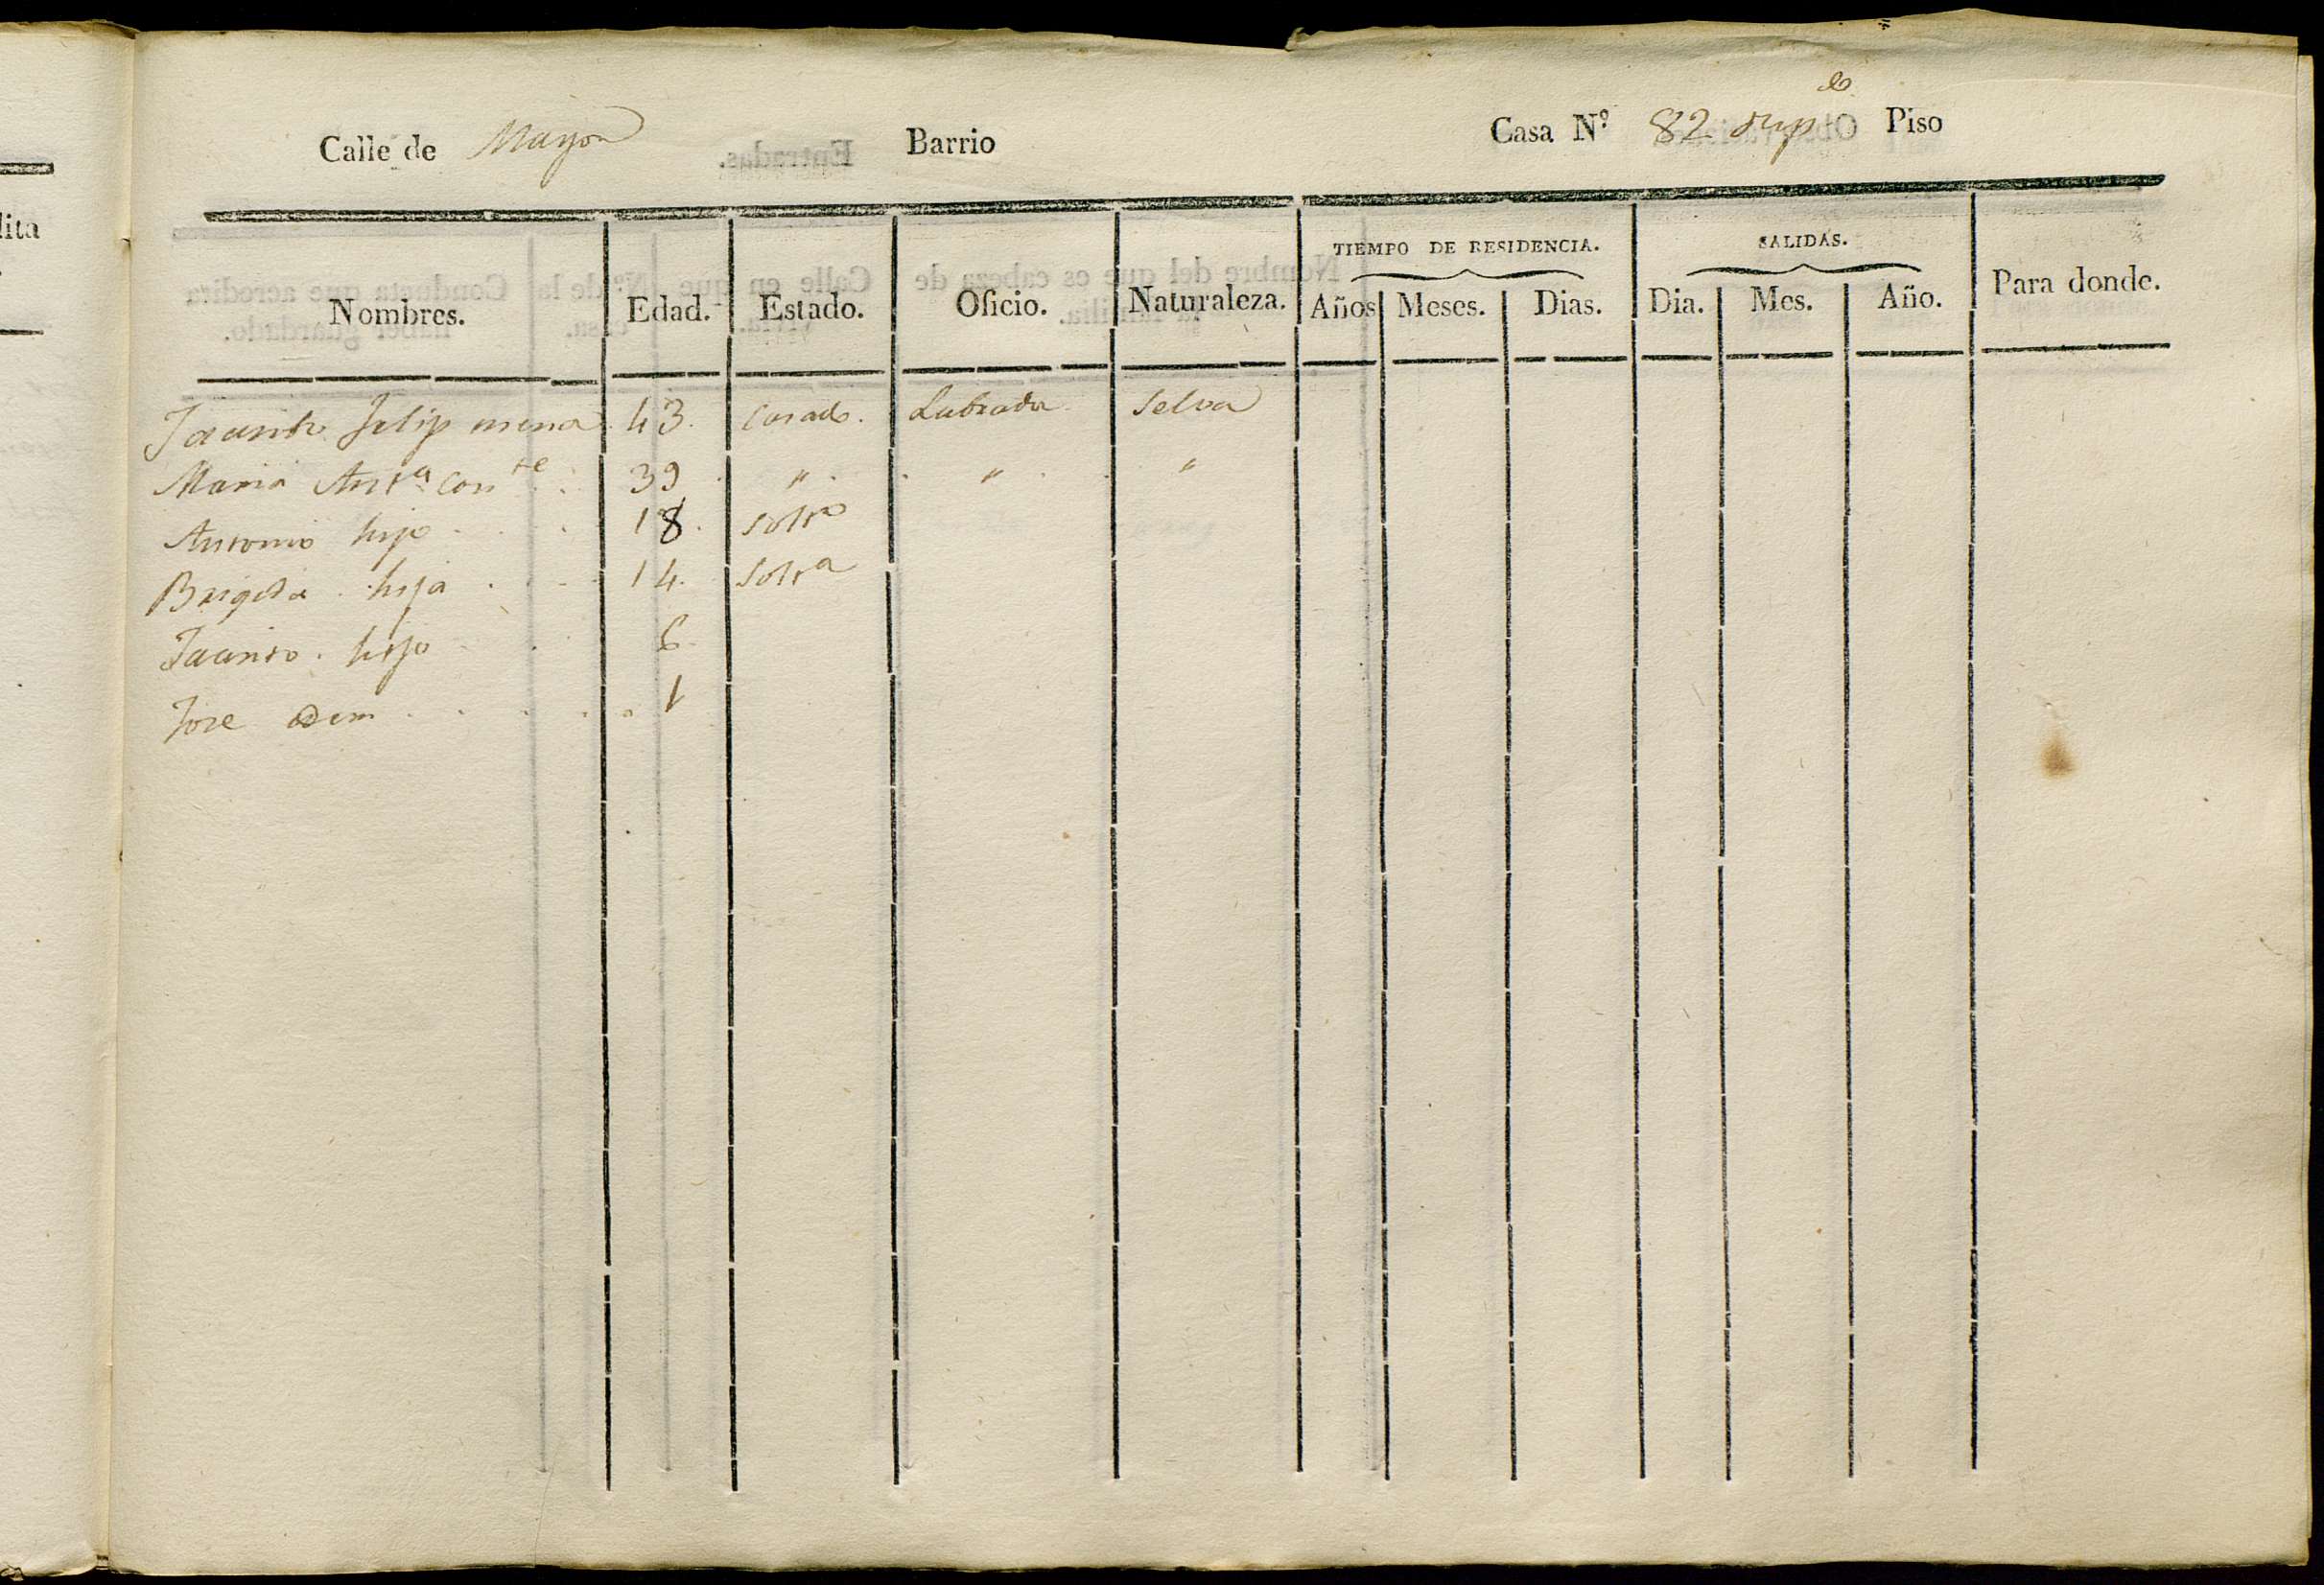 Calle de Mayor Barrio Casa Nº 82 dupdo Piso
TIEMPO DE RESIDENCIA. SALIDAS.
Nombres. Edad. Estado. Oficio. Naturaleza. Años Meses. Dias. Dia. Mes. Año. Para donde.
Jacinto Felip 43. Casado. Labrador Selva
Maria Anta conte 39 " " "
Antonio hijo 18. Soltro
Brigida hija 14. Soltra
Jacinto hijo 6
Jose idem 1
dita